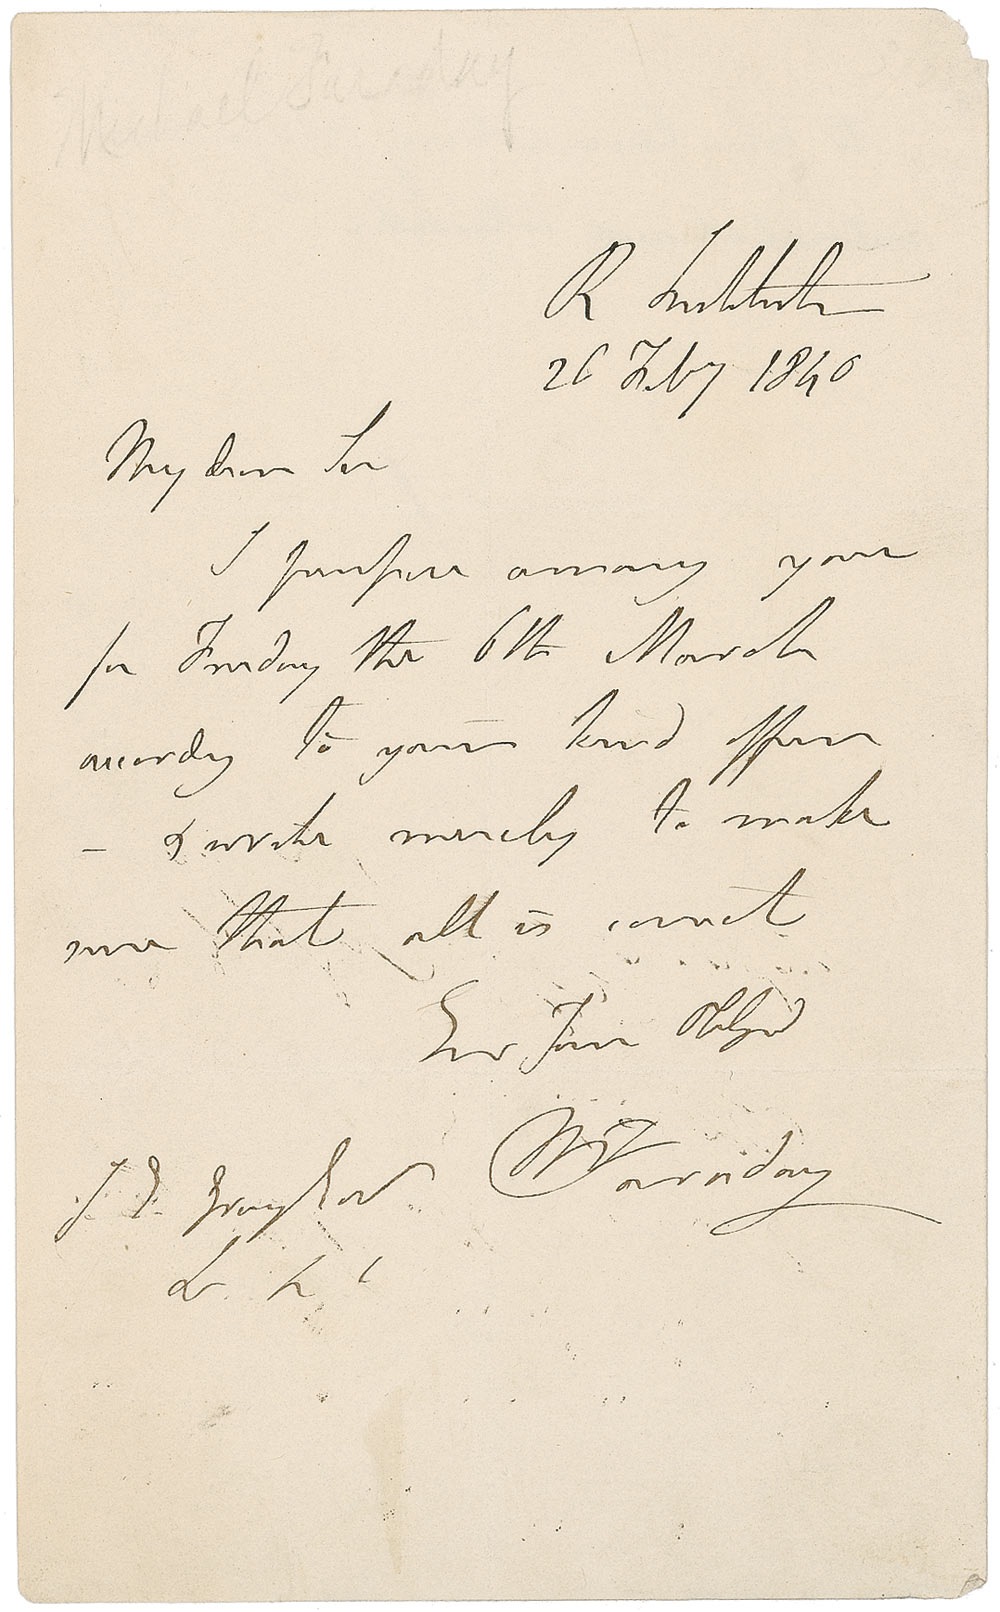 Michael Faraday
R Institution
26 Feby 1840
My dear Sir
I purpose you
for Friday the 6th March
according to your kind offer
- & write merely to make
sure that all is correct
Ever Your Obligd
M Faraday
J. E. Gray Esqr
&c &c &c